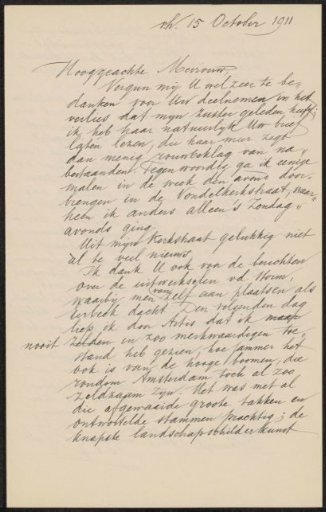 15 October 1911
Hooggeachte Mevrouw,
Vergun mij U wel zeer te be-
danken voor Uw deelnemen in het
verlies dat mijn zuster geleden heeft;
ik heb haar natuurlijk Uw brief
laten lezen, die haar meer zegt
dan menig rouwbeklag van na-
bestaanden. Tegenwoordig ga ik eenige
malen in de week den avond door-
brengen in de Vondelkerkstraat, waar-
heen ik anders alleen 's Zondag-
avonds ging.
Uit mijn Kerkstraat gelukkig niet
al te veel nieuws.
Ik dank U ook van de berichten
over de uitwerkselen v.d. storm,
waarbij men vanzelf aan plaatsen als
dacht. Den volgenden dag
liep ik door Artis dat ik
nooit zelden in zoo merkwaardigen toe-
stand heb gezien, hoe jammer het
ook is van de hooge boomen, die
rondom Amsterdam toch al zoo
zeldzaam zijn. Het was met al
die afgewaaide groote takken en
ontwortelde stammen prachtig; de
knapste landschapschilderkunst